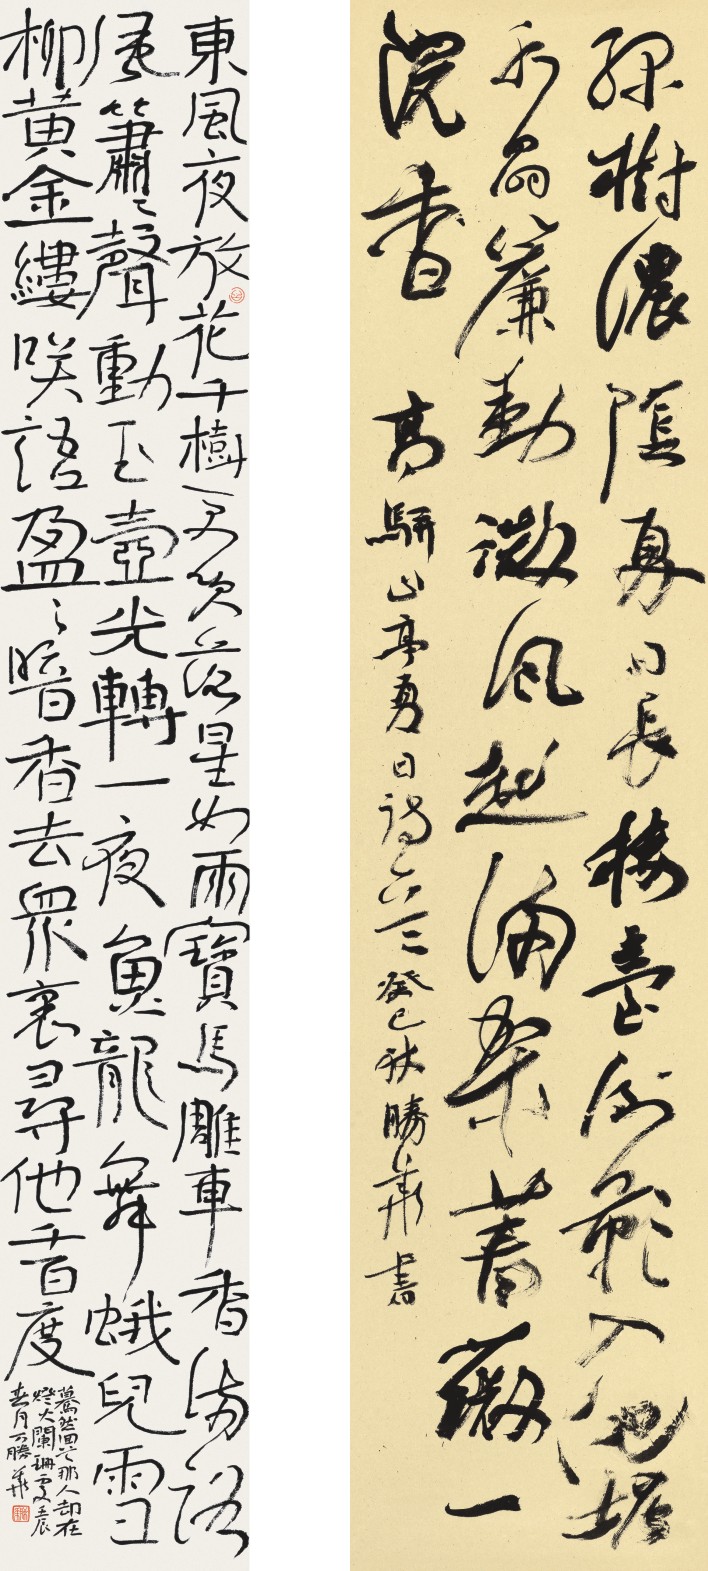 緑樹濃陰夏日長樓臺倒影入池塘
水晶簾動微風起滿架薔薇一
院香 高駢山亭夏日詩 癸巳秋勝華書
東風夜放花千樹更吹落星如雨寶馬雕車香滿路
風簫聲動玉壺光轉一夜魚龍舞蛾兒雪
柳黄金縷咲語盈〻暗香去衆裏尋他千百度
驀然回首那人却在
燈火闌珊處壬辰
春月万勝華